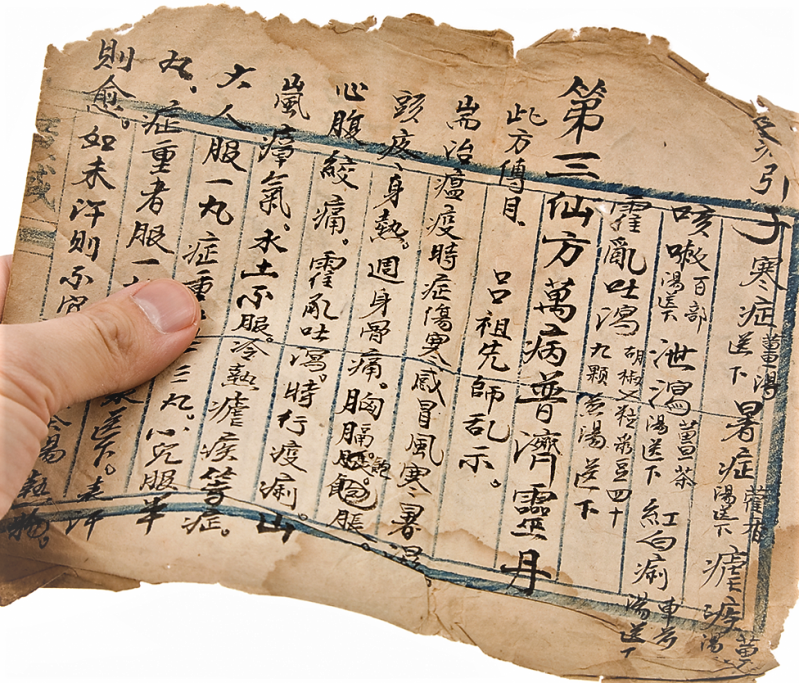 引子寒症薑湯送下暑症藿香湯送下瘧疾
咳嗽百部湯送下泄瀉薑茶湯送下紅白痢車前湯送下
霍亂吐瀉胡椒七粒彔豆四十九顆煎湯送下
第三仙方萬病普濟靈丹
此方傳自呂祖先師乩示。
耑治瘟疫時症傷寒感冒風寒暑濕
頭疼身熱。週身骨痛。胸膈飽脹
心腹絞痛。霍乱吐瀉。時行疫痢。山
嵐瘴氣。水土不服。冷熱瘧疾等症。
大人服一丸症重三丸。小兒服半
丸、症重者服一
則愈。如未汗則不宜